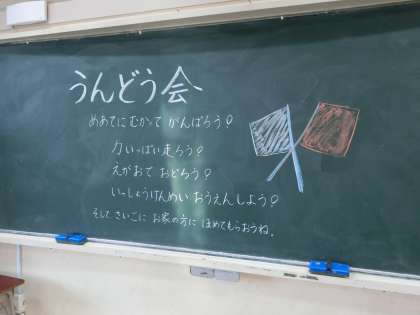 うんどう会
めあてにむかって がんばろう!
力いっぱい走ろう!
えがおで おどろう!
いっしょうけんめい おうえんしよう!
そして さいごに お家の方に ほめてもらおうね。